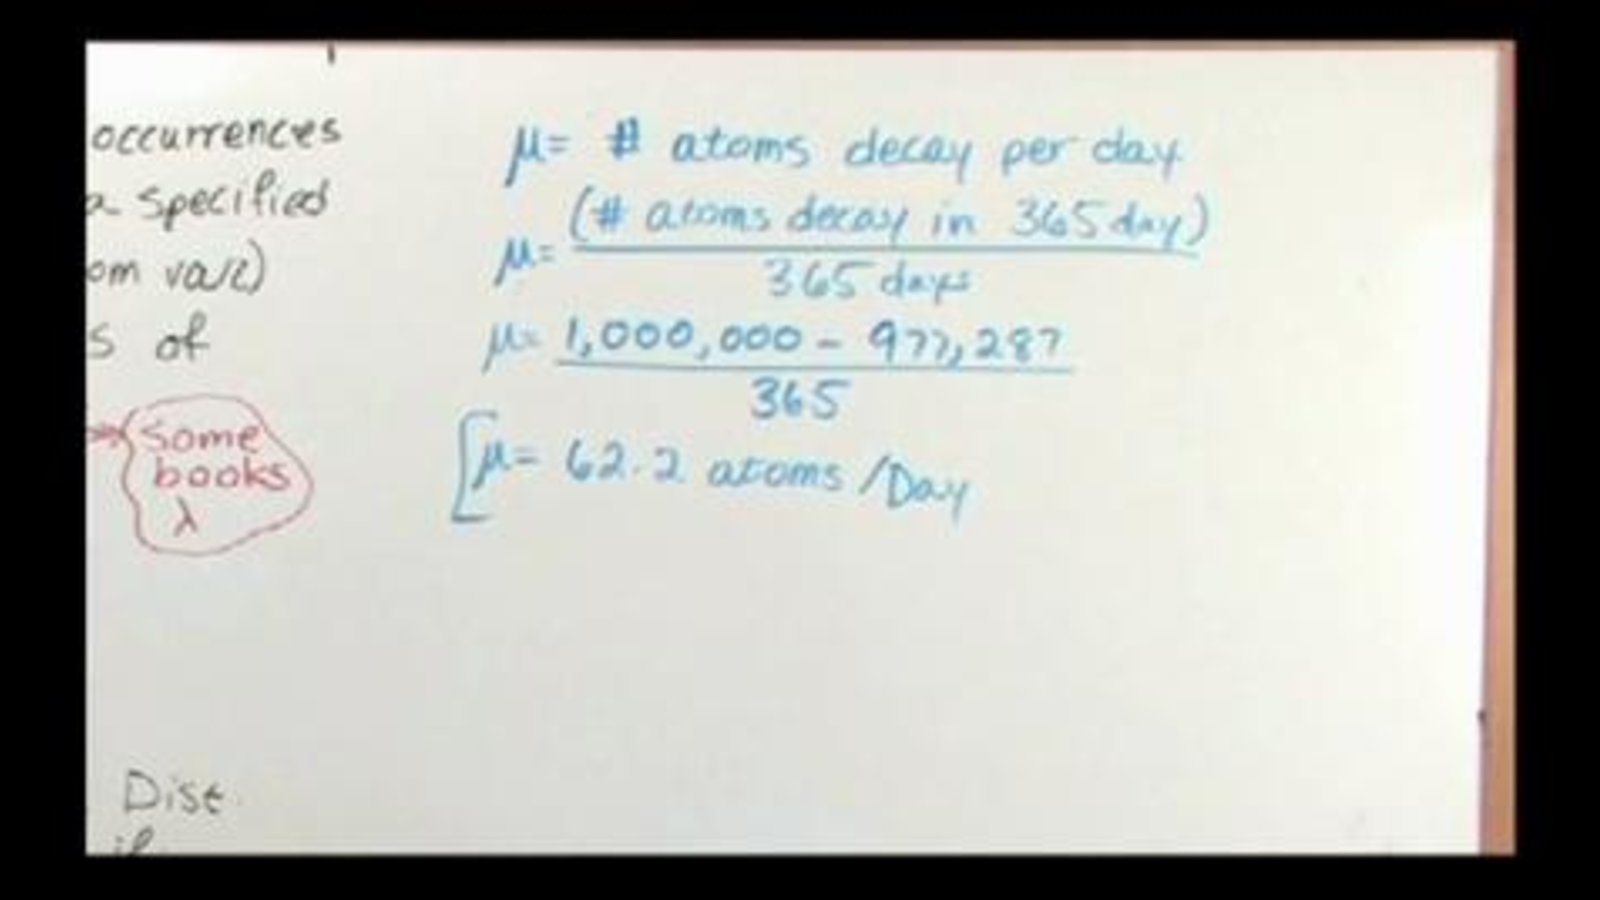 occurrences
a specified
om var)
s of
some
books
λ
Dist.
μ= # atoms decay per day
μ= (# atoms decay in 365 day)
365 days
μ= 1,000,000 - 977,287
365
[μ= 62.2 atoms /Day